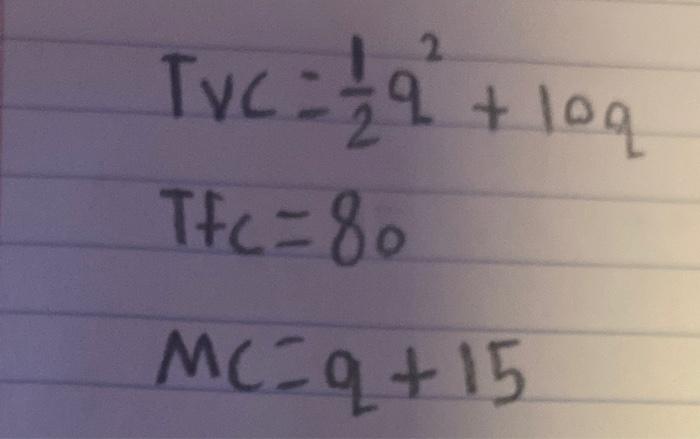 TVC = 1/2 q² + 10q
Tfc = 80
MC = q + 15